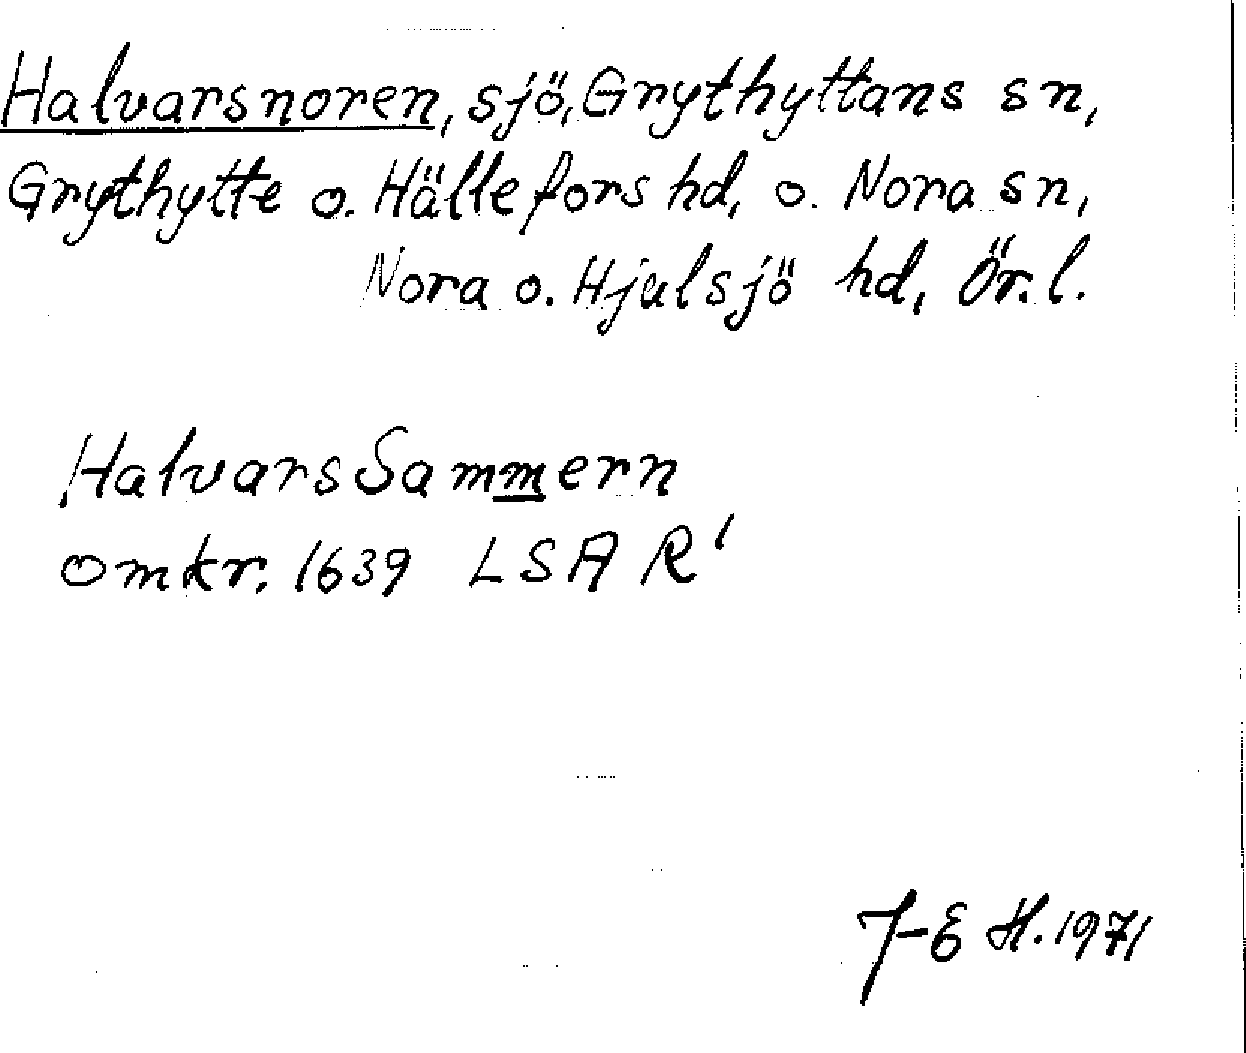 Halvarsnoren, sjö, Grythyttans sn,
Grythytte o. Hällefors hd, o. Nora sn,
Nora o. Hjulsjö hd, Ör. l.
Halvars Sammern
omkr. 1639 LSA R1
J-E H. 1971